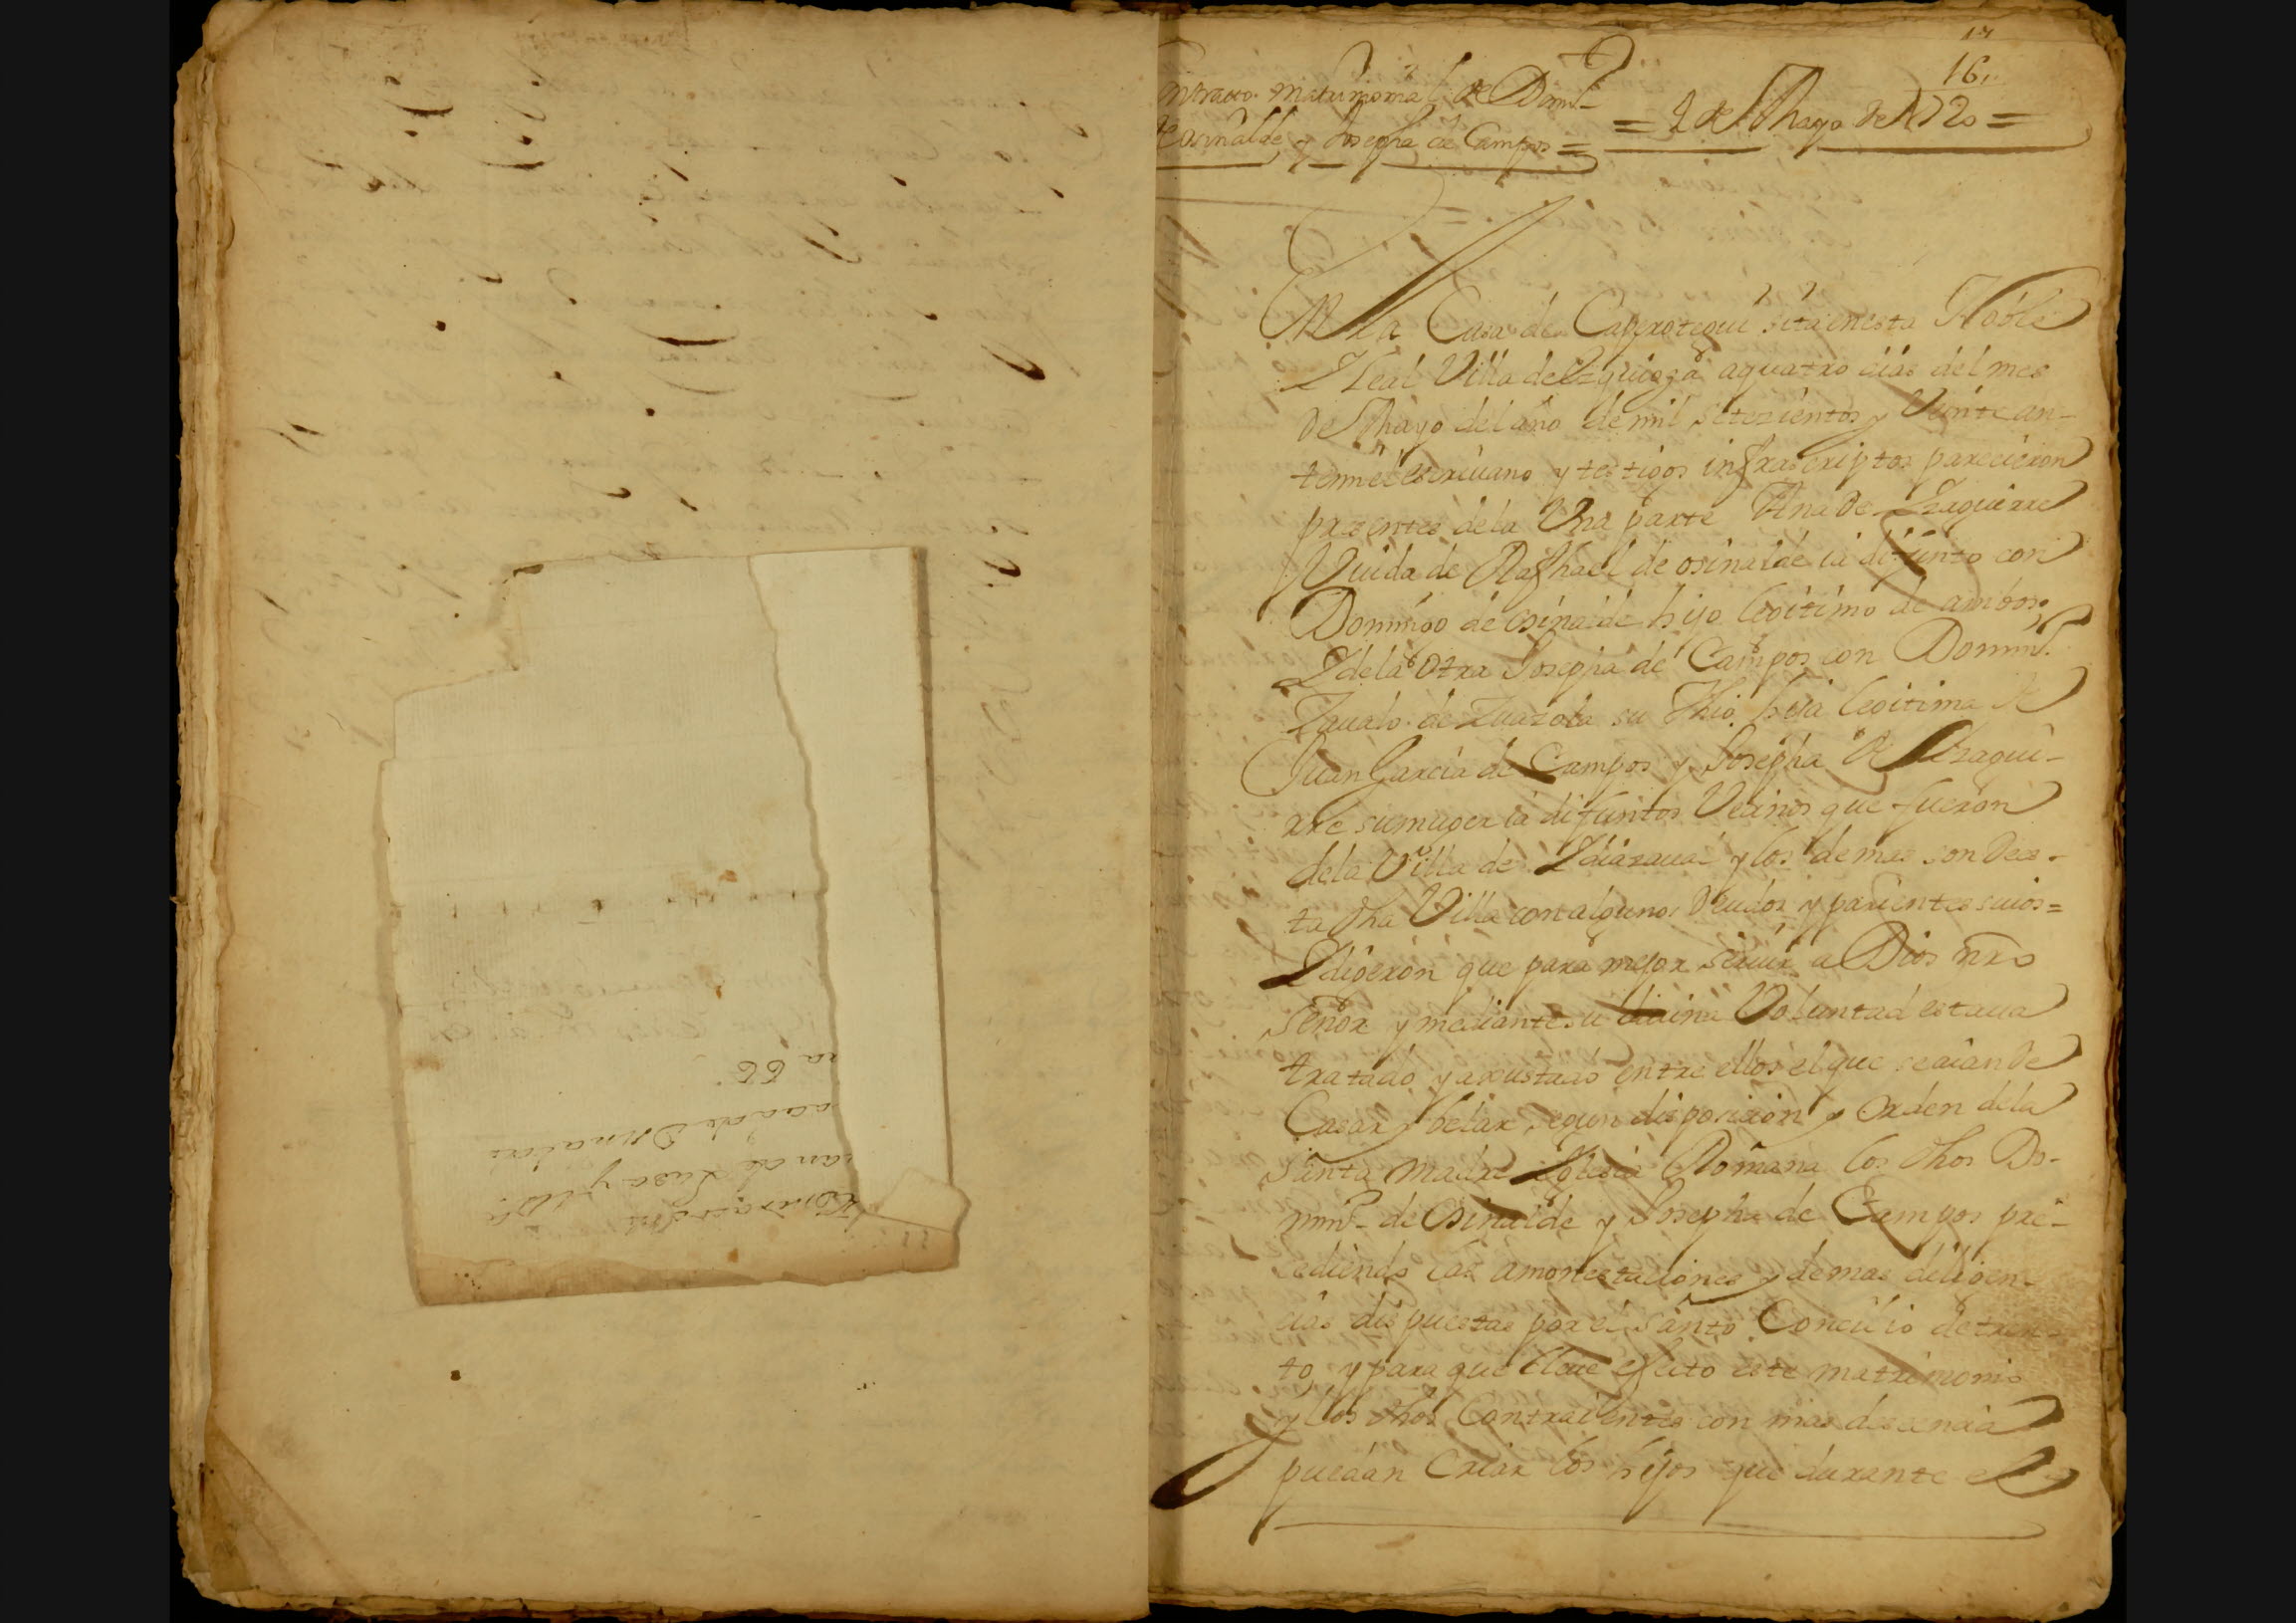 17
16
Contracto matrimonial de Domº
de osinalde y Josepha de Campos = = 4 de Mayo de 1720 =
En la Casa de Caperotegui sita en esta Noble
I Leal Villa de Ezquioga a quatro dias del mes
de Mayo del año de mil setezientos y Veinte an-
temi el escriuano y testigos infraescriptos parecieron
presentes de la Vna parte Ana de Izaguirre
Viuda de Raphael de osinalde ia difunto con
Domingo de osinalde hijo lexitimo de ambos,
I de la otra Josepha de Campos con Domingº
de Zuazola su Thio hija legitima de
Juan Garcia de Campos y Josepha de Izagui-
rre su muger ia difuntos Vecinos que fueron
de la Villa de Idiazaual y los demas son de es-
ta dha Villa con algunos deudos y parientes suios =
I digeron que para mejor seruir a Dios nro
Señor y mediante su diuina Voluntad estaua
tratado y axustado entre ellos el que se aian de
Casar y belar segun disposicion y orden de la
Santa Madre Iglesia Romana los dhos Do-
mingº de Osinalde y Josepha de Campos pre-
cediendo las amonestaciones y demas diligen-
cias dispuestas por el santo Concilio de tren-
to, y para que lleue efecto este matrimonio
y los dhos Contraientes con mas desencia
puedan Criar los hijos que durante el